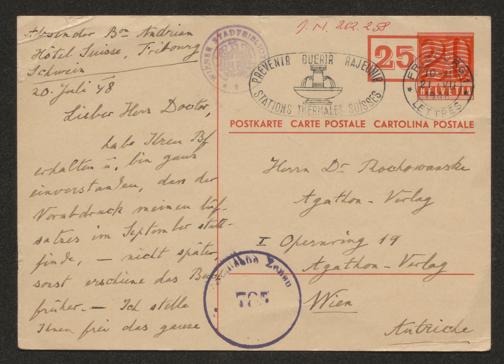 Alexander Bn Andrian
Hôtel Suisse, Fribourg
Schweiz
20. Juli 48
Lieber Herr Doctor,
habe Ihren Bf
erhalten u. bin ganz
einverstanden, dass der
Vorabdruck meines Auf-
satzes im September statt-
finde, – nicht später,
sonst erschiene das Buch
früher. – Ich stelle
Ihnen frei das ganze
J.N. 202.258
25
HELVETIA
PREVENIR GUERIR RAJEUNIR
STATIONS THERMALES SUISSES
FRIBOURG 1
LETTRES
POSTKARTE CARTE POSTALE CARTOLINA POSTALE
Herrn Dr Rochowanski
Agathon-Verlag
I Opernring 19
Agathon-Verlag
Wien
Autriche
WIENER STADTBIBLIOTHEK
785